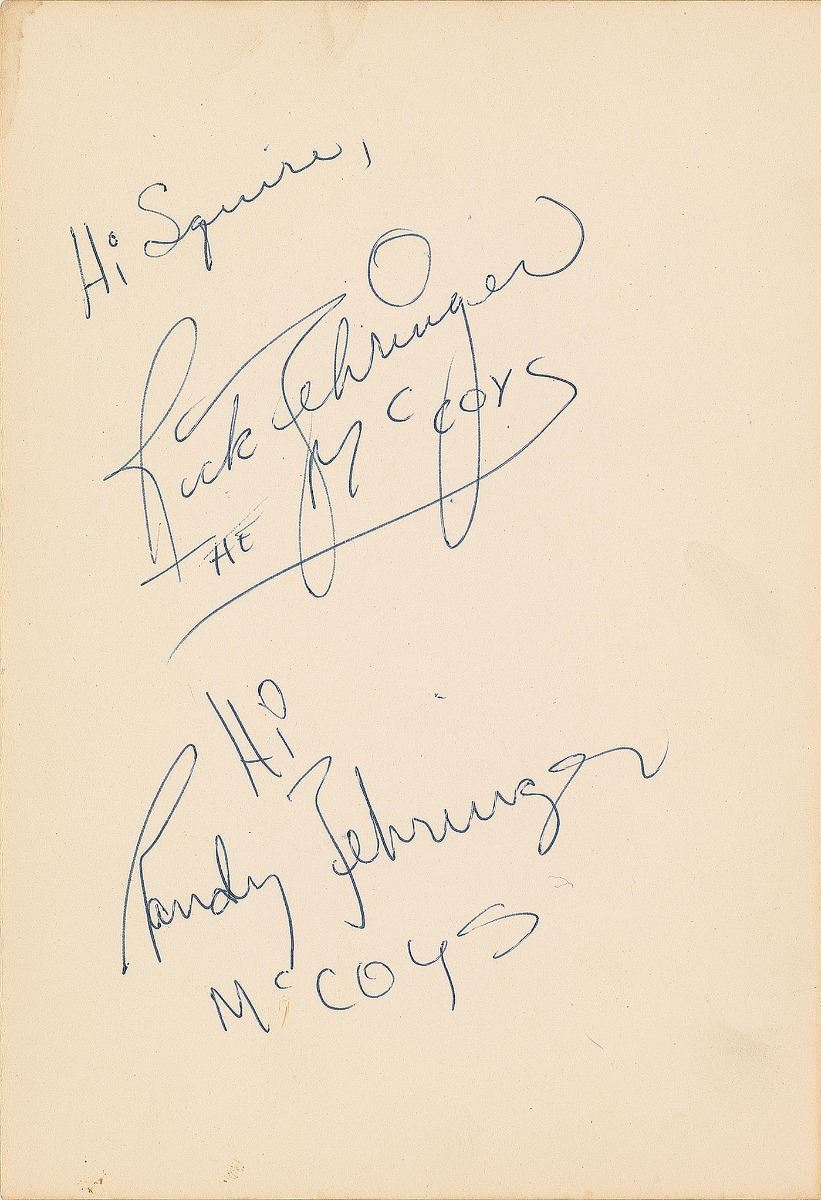 Hi Squire,
Rick Zehringer
THE McCOYS
Hi
Randy Zehringer
McCOYS